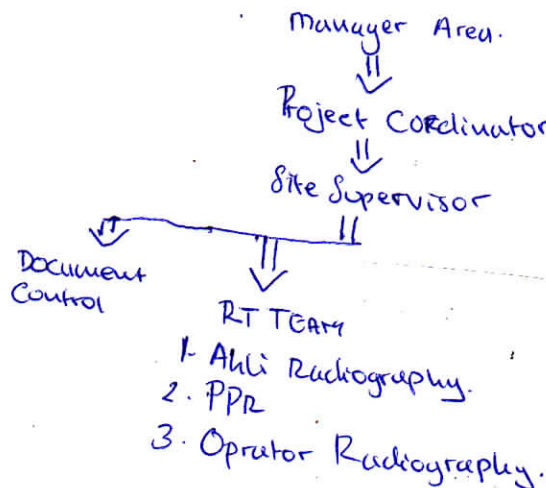 Manager Area.
Project Cordinator
Site Supervisor
Document
Control
RT TEAM
1. Ahli Radiography.
2. PPR
3. Oprator Radiography.